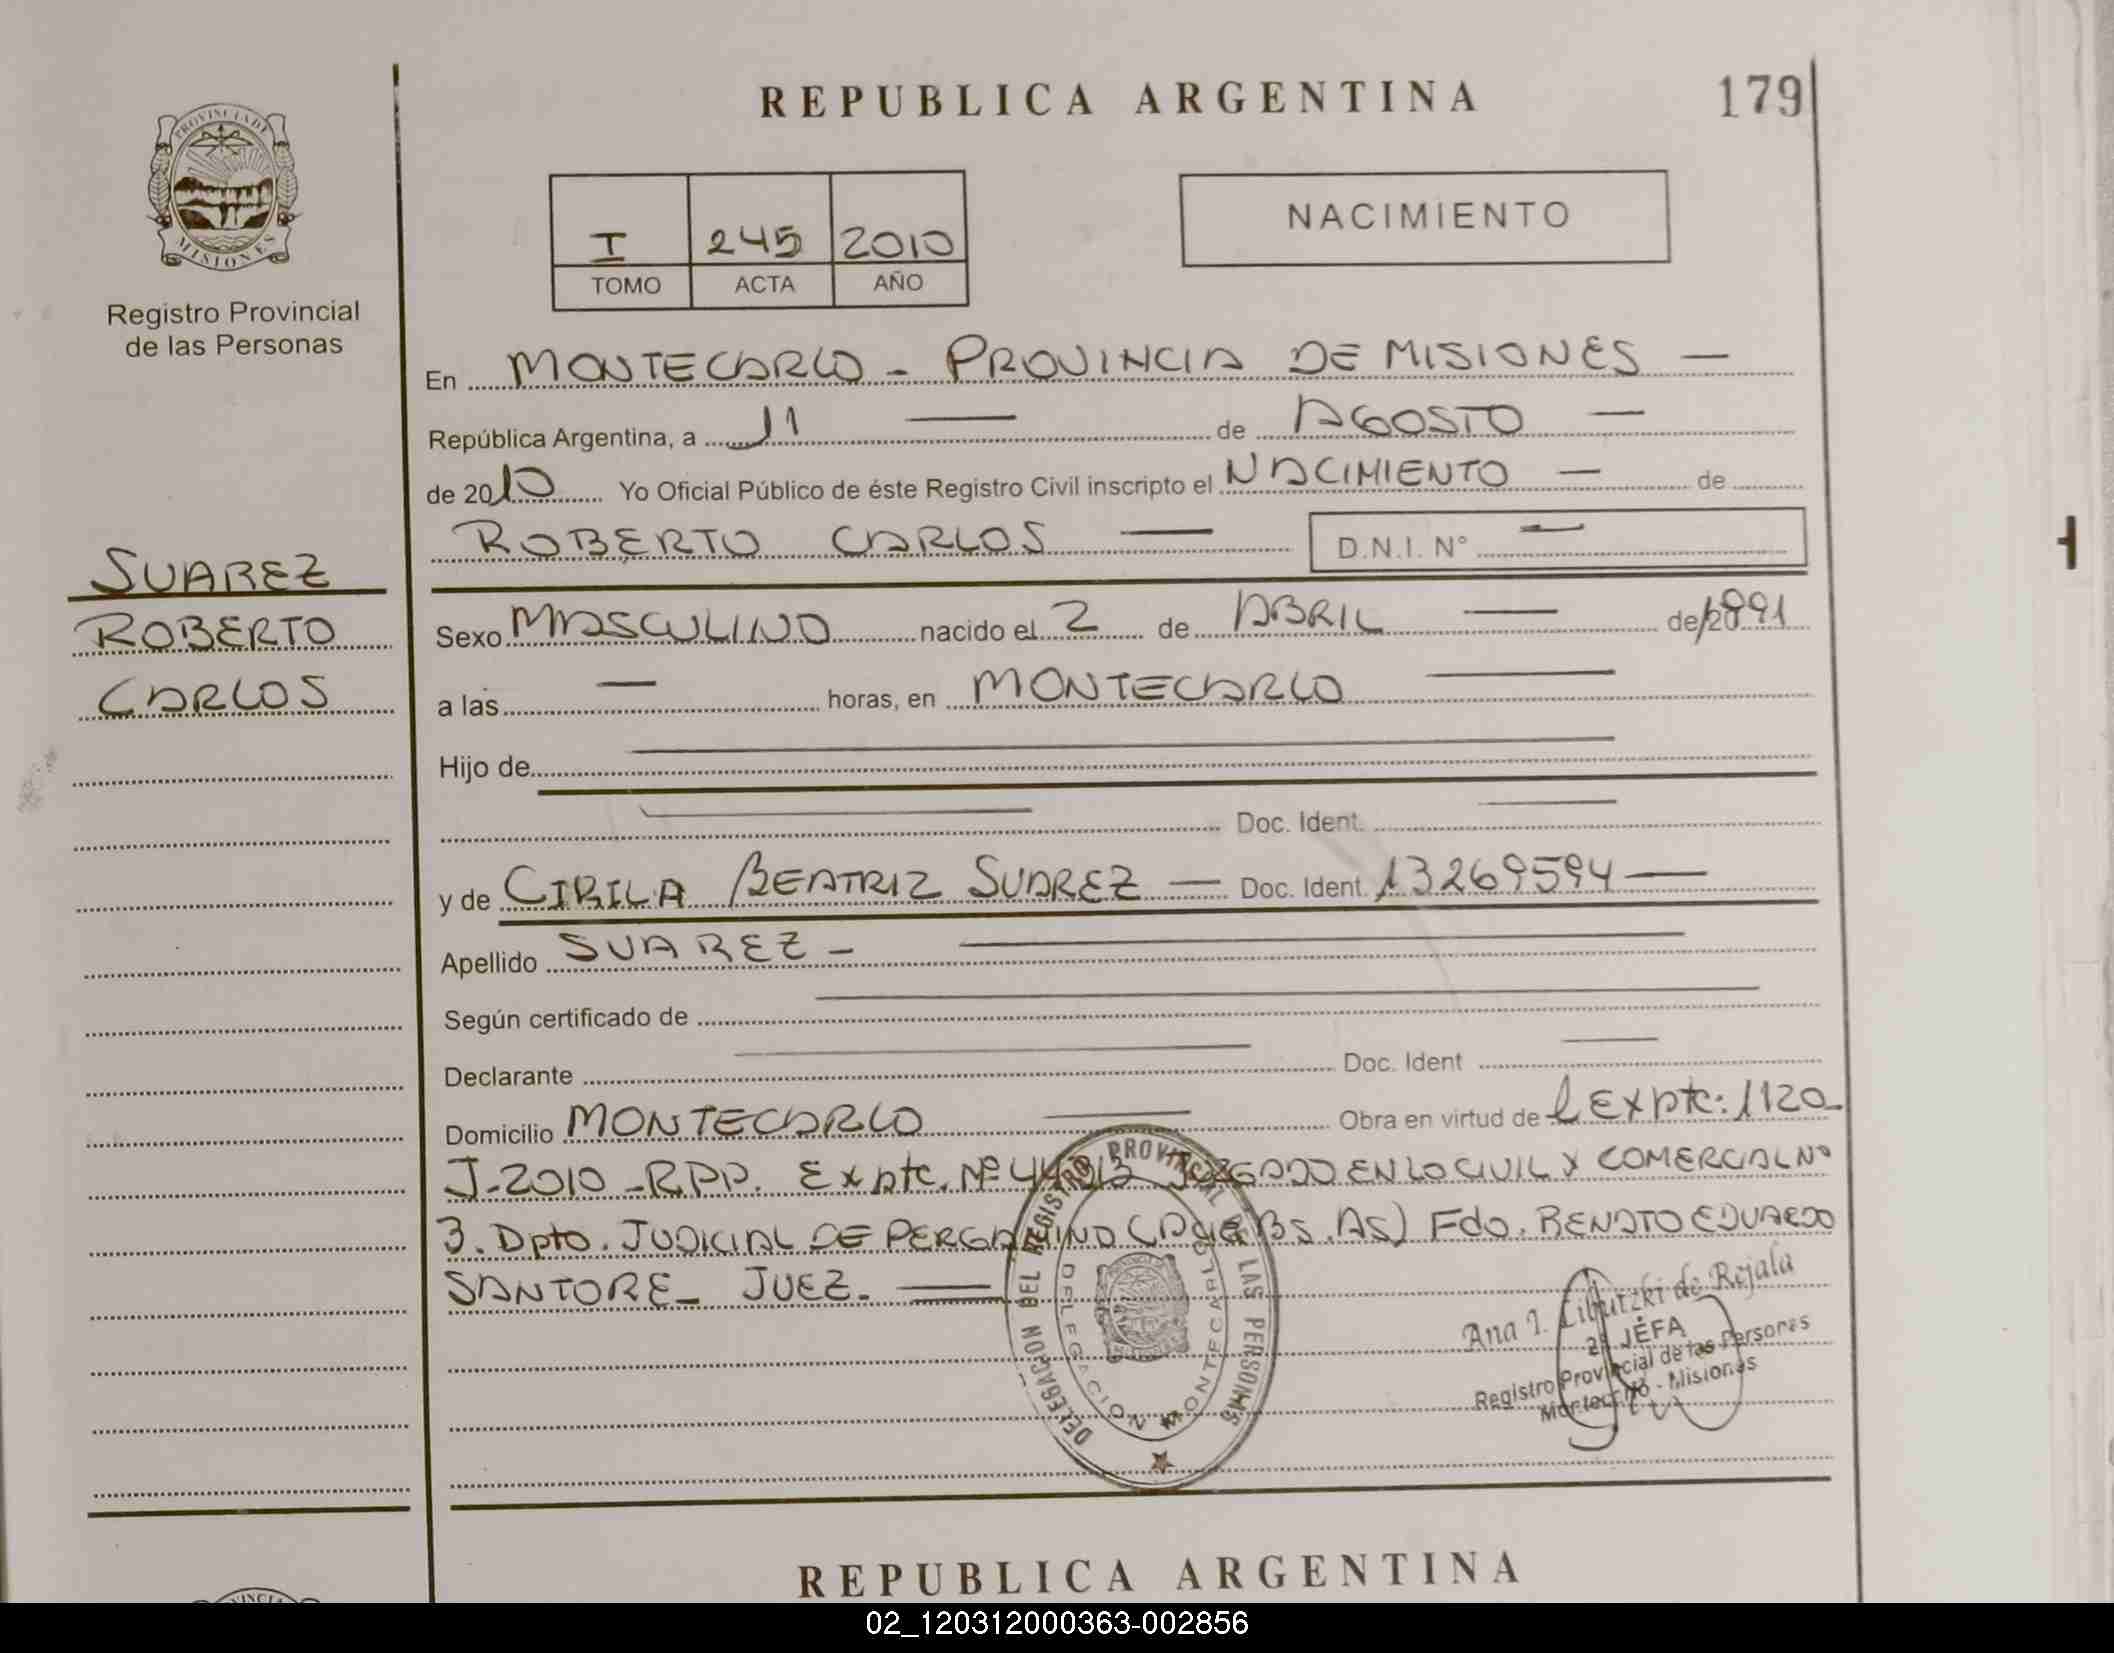 REPUBLICA ARGENTINA
179
PROVINCIA DE
MISIONES
Registro Provincial
de las Personas
I 245 2010
TOMO ACTA AÑO
NACIMIENTO
En MONTECARLO - PROVINCIA DE MISIONES —
República Argentina, a 11 — de AGOSTO —
de 2010 Yo Oficial Público de éste Registro Civil inscripto el NACIMIENTO — de
ROBERTO CARLOS — D.N.I. N° —
SUAREZ
ROBERTO
CARLOS
Sexo MASCULINO nacido el 2 de ABRIL — de 1991
a las — horas, en MONTECARLO —
Hijo de —
— Doc. Ident. —
y de CIRILA BEATRIZ SUAREZ — Doc. Ident. 13269594 —
Apellido SUAREZ - —
Según certificado de —
Declarante — Doc. Ident —
Domicilio MONTECARLO — Obra en virtud de Expte: 1120-
J-2010 - RPP. Expte. Nº JUZGADO EN LO CIVIL Y COMERCIAL Nº
3. Dpto. JUDICIAL DE PERGAMINO Bs. As) Fdo. RENATO EDUARDO
SANTORE - JUEZ. —
DELEGACION DEL REGISTRO PROVINCIAL DE LAS PERSONAS
DELEGACION MONTECARLO
Ana I. de Rejala
2ª JEFA
Registro Provincial de las Personas
Montecarlo - Misiones
REPUBLICA ARGENTINA
02_120312000363-002856